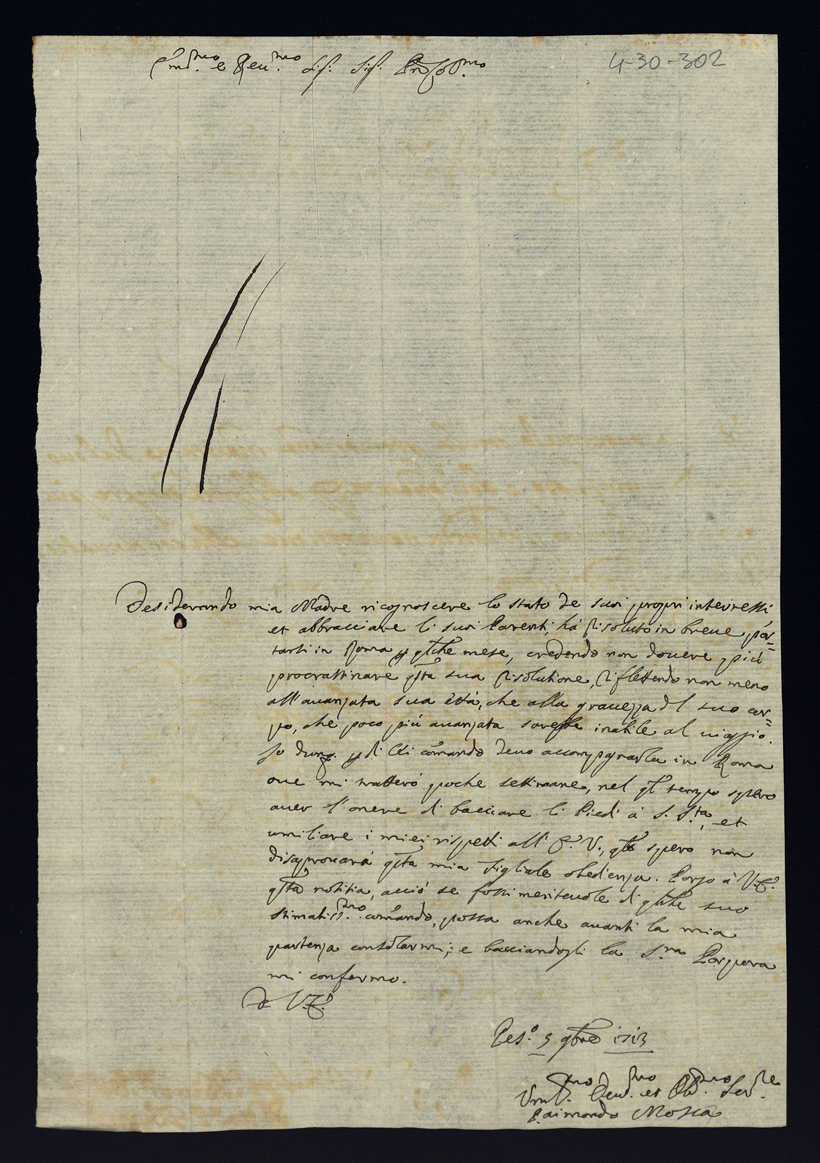 Em.mo e Rev.mo Sig. Sig. Pron Col.mo
4-30-302
Desiderando mia Madre ricognoscere lo stato de suoi proprij interessi
et abbracciare li suoi Parenti, há risoluto in breve por=
tarsi in Roma p qlche mese, credendo non dovere piú
procrastinare qta sua risolutione, riflettendo non meno
all'avanzata sua etá, che alla gravezza del suo cor=
po, che poco piú avanzata sarebbe inabile al viaggio.
Io dunq p di Lei comãndo devo accompagnarla in Roma
ove mi tratterró poche settimane, nel ql tempo spero
aver l'onere di bacciare li Piedi á S. S.tá, et
umiliare i miei rispetti all' E. V., qle spero non
disaprovará qta mia figliale obedienza. Porgo á V. E.
qta notitia, acció se fossi meritevole di qlche suo
stimatis.mo comãndo, possa anche avanti la mia
partenza consolarmi; e bacciandogli la S.ra Porpora
mi confermo.
D. V. E.
Pes.o 5 9bre 1713
Uml.mo Dev.mo et Obl.mo Ser.re
Raimondo Mosca